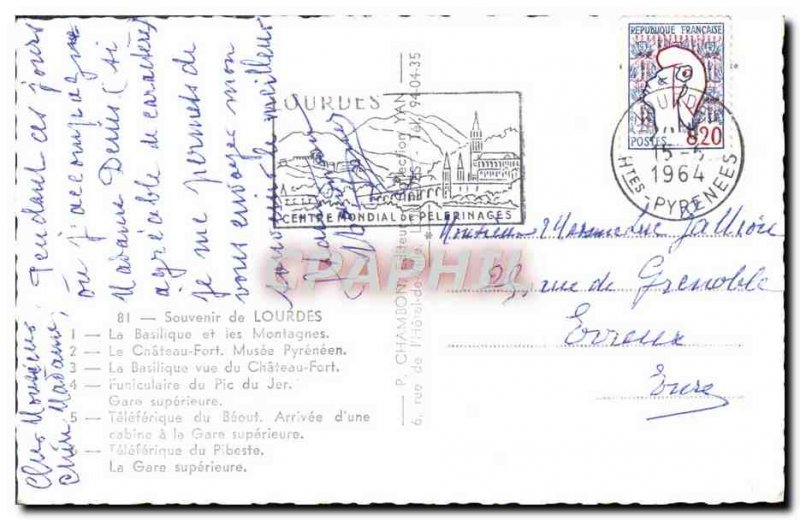 Cher Monsieur,
Chère Madame,
Pendant ces jours
où j'accompagne
Madame Denis (si
agréable de caractère)
je me permets de
vous envoyer mon
meilleur
RÉPUBLIQUE FRANÇAISE
POSTES
0.20
LOURDES
15-5
1964
HTES PYRENEES
LOURDES
CENTRE MONDIAL DE PELERINAGES
Monsieur
rue de Grenoble
Evreux
Eure
81 — Souvenir de LOURDES
1 — La Basilique et les Montagnes.
2 — Le Château-Fort. Musée Pyrénéen.
3 — La Basilique vue du Château-Fort.
4 — Funiculaire du Pic du Jer.
Gare supérieure.
5 — Téléférique du Béout. Arrivée d'une
cabine à la Gare supérieure.
6 — Téléférique du Pibeste.
La Gare supérieure.
P. CHAMBON, Editeur YAN
6, rue de l'Hôtel-de 94-04-35
CPAPHIL